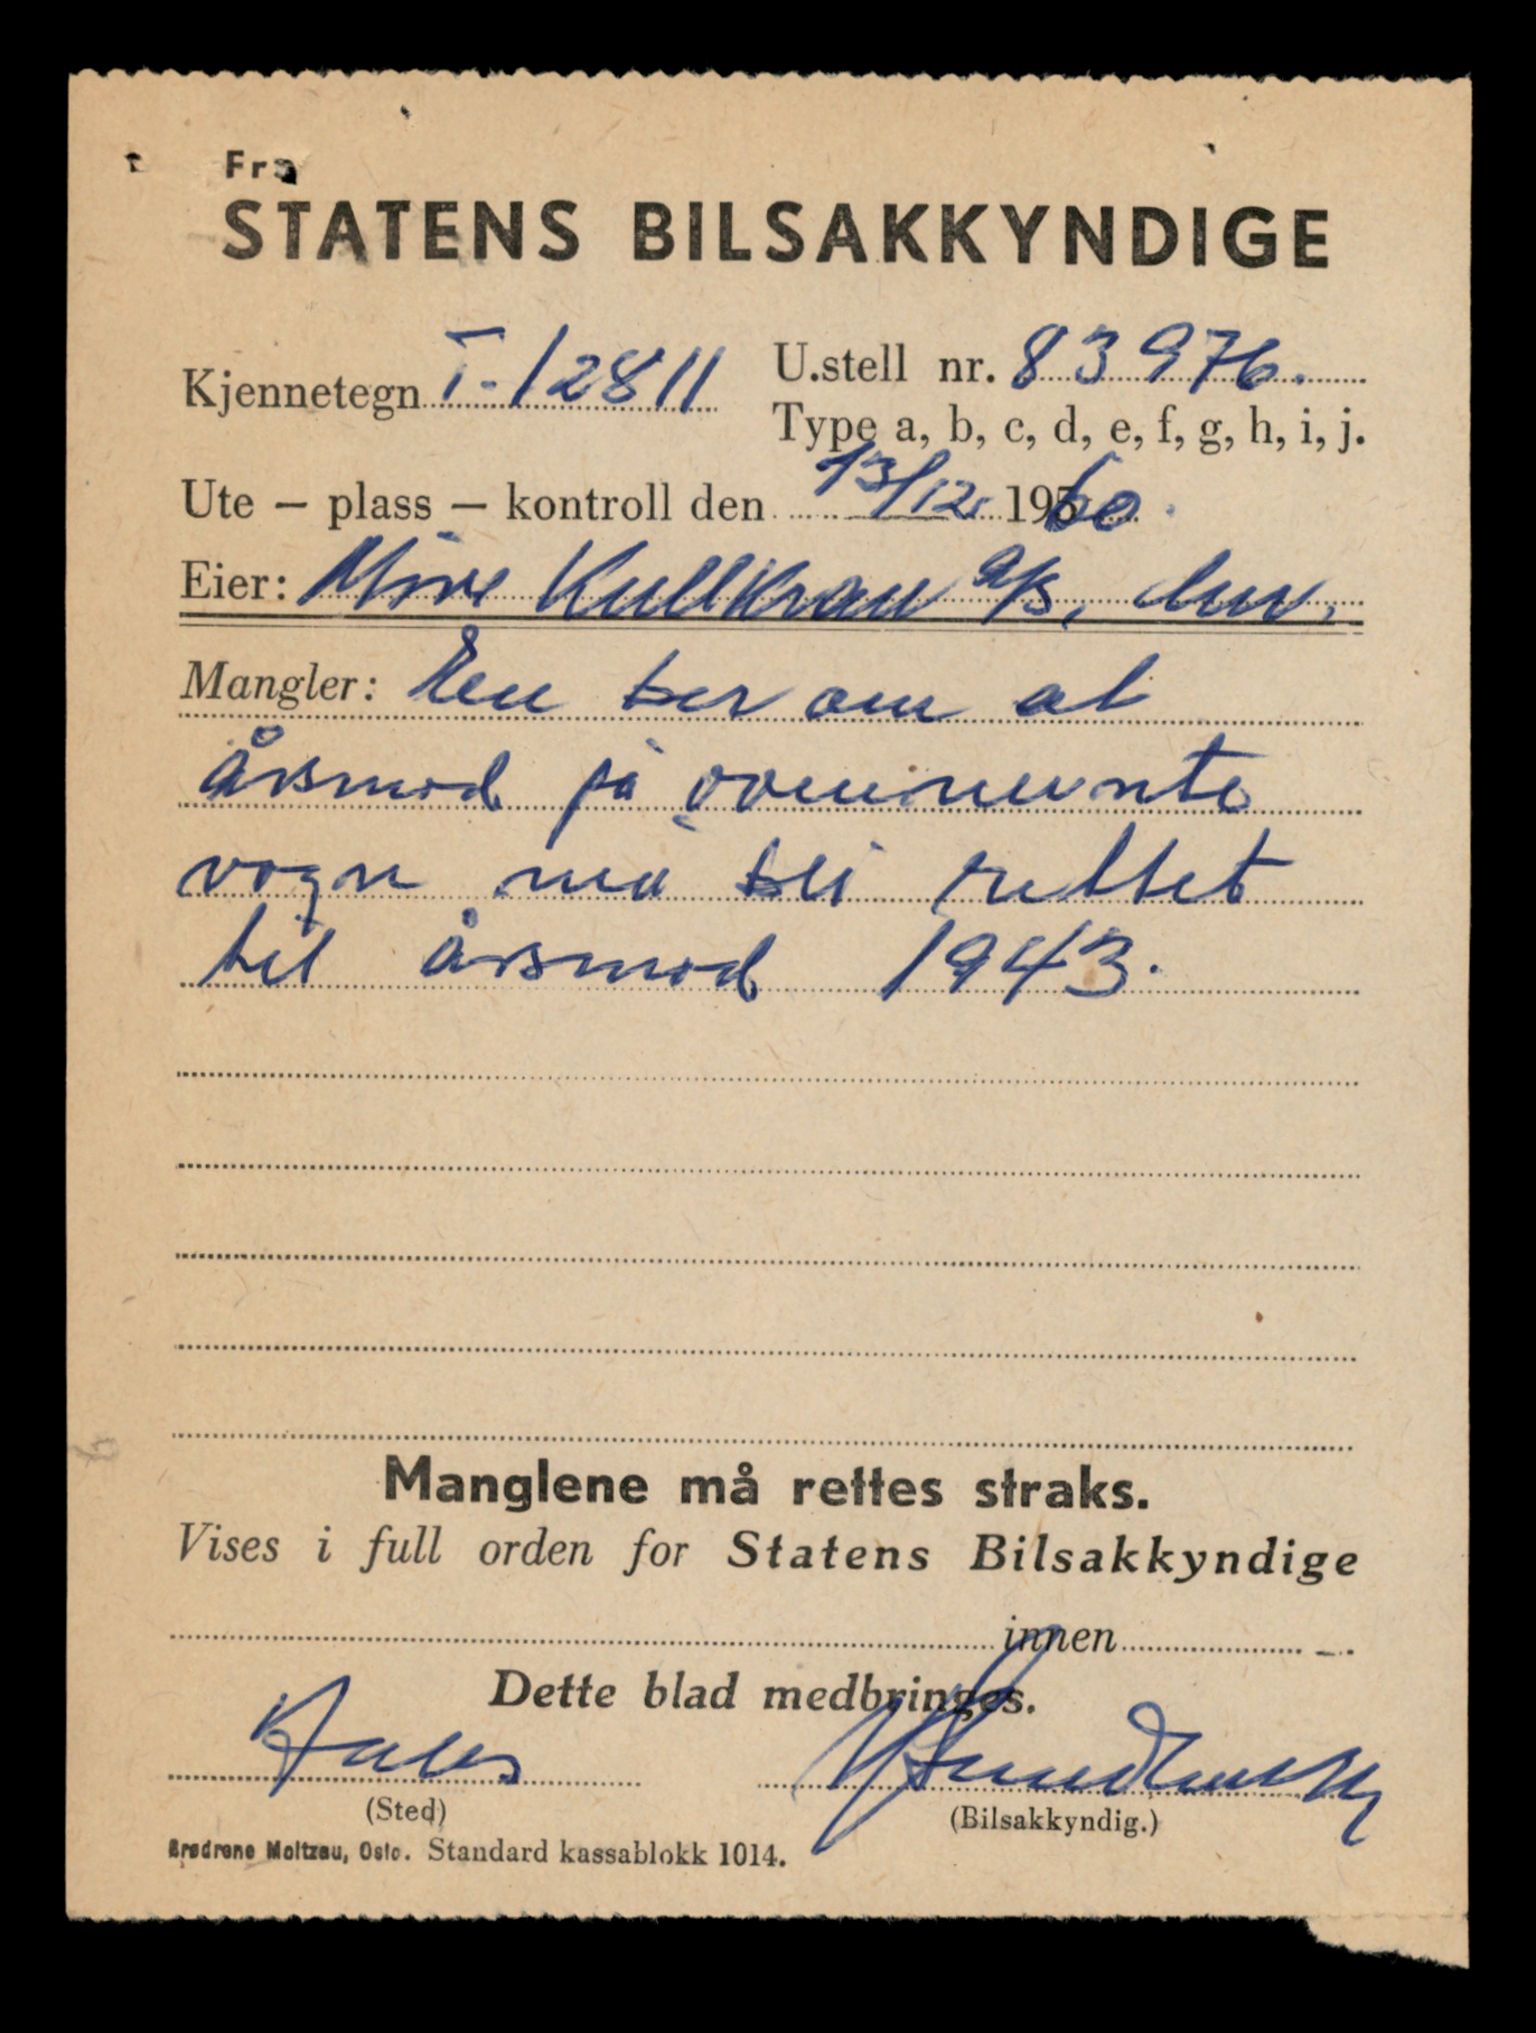 Fra
STATENS BILSAKKYNDIGE
Kjennetegn T-12811 U.stell nr. 83976.
Type a, b, c, d, e, f, g, h, i, j.
Ute – plass – kontroll den 13/12 1960.
Eier: Møre Kullkran a/s,
Mangler: En ber om at
årsmod på ovennevnte
vogn må bli rettet
til årsmod 1943.
Manglene må rettes straks.
Vises i full orden for Statens Bilsakkyndige
innen
Dette blad medbringes.
(Sted) (Bilsakkyndig.)
Brødrene Moltzau, Oslo. Standard kassablokk 1014.